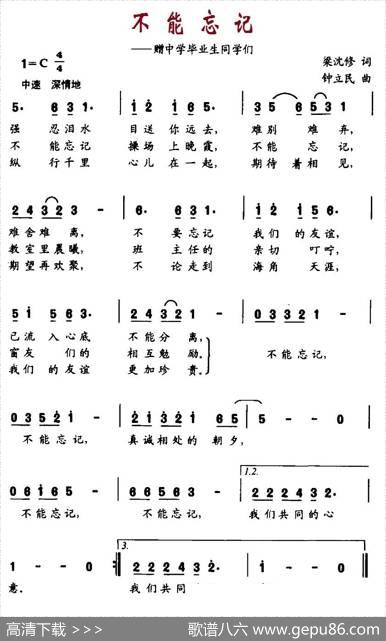 不能忘记
——赠中学毕业生同学们
1=C 4/4
梁沈修 词
中速 深情地
钟立民 曲
5· 6 3· | 1 2 1 6 5· | 3 5 6 5 3 1 |
强 忍泪水 目送 你远去, 难别 难弃,
不 能忘记 操场 上晚霞, 不能 忘记,
纵 行千里 心儿 在一起, 期待 着相见,
2 4 3 2 3 - | 6· 6 3· | 1 2 1 6 5· |
难舍难 离, 不 要忘记 我们 的友谊
教室里晨曦, 班 主任的 亲切 叮咛,
期望再欢聚, 不 论走到 海角 天涯,
5 1 5 6 3· | 2 4 3 2 1 - | 0 3 3 2 3 - |
已流 入心底 不能分 离,
窗友 们的 相互勉 励。 不能忘记,
我们 的友谊 更加珍 贵。
0 3 5 2 1 - | 2 1 3 2 1 6 5 | 5 - - 0 |
不能忘记, 真诚相处的 朝夕,
1.2.
0 6 1 6 5 - | 0 6 5 6 3 - | 2 2 2 4 3 2· |
不能忘记, 不能忘记, 我们共同的心
3.
1 - - 0 :‖ 2 2 2 4 3 2 | 1 - - 0 ‖
意。 我们共同
高清下载 >>>
歌谱八六 www.gepu86.com